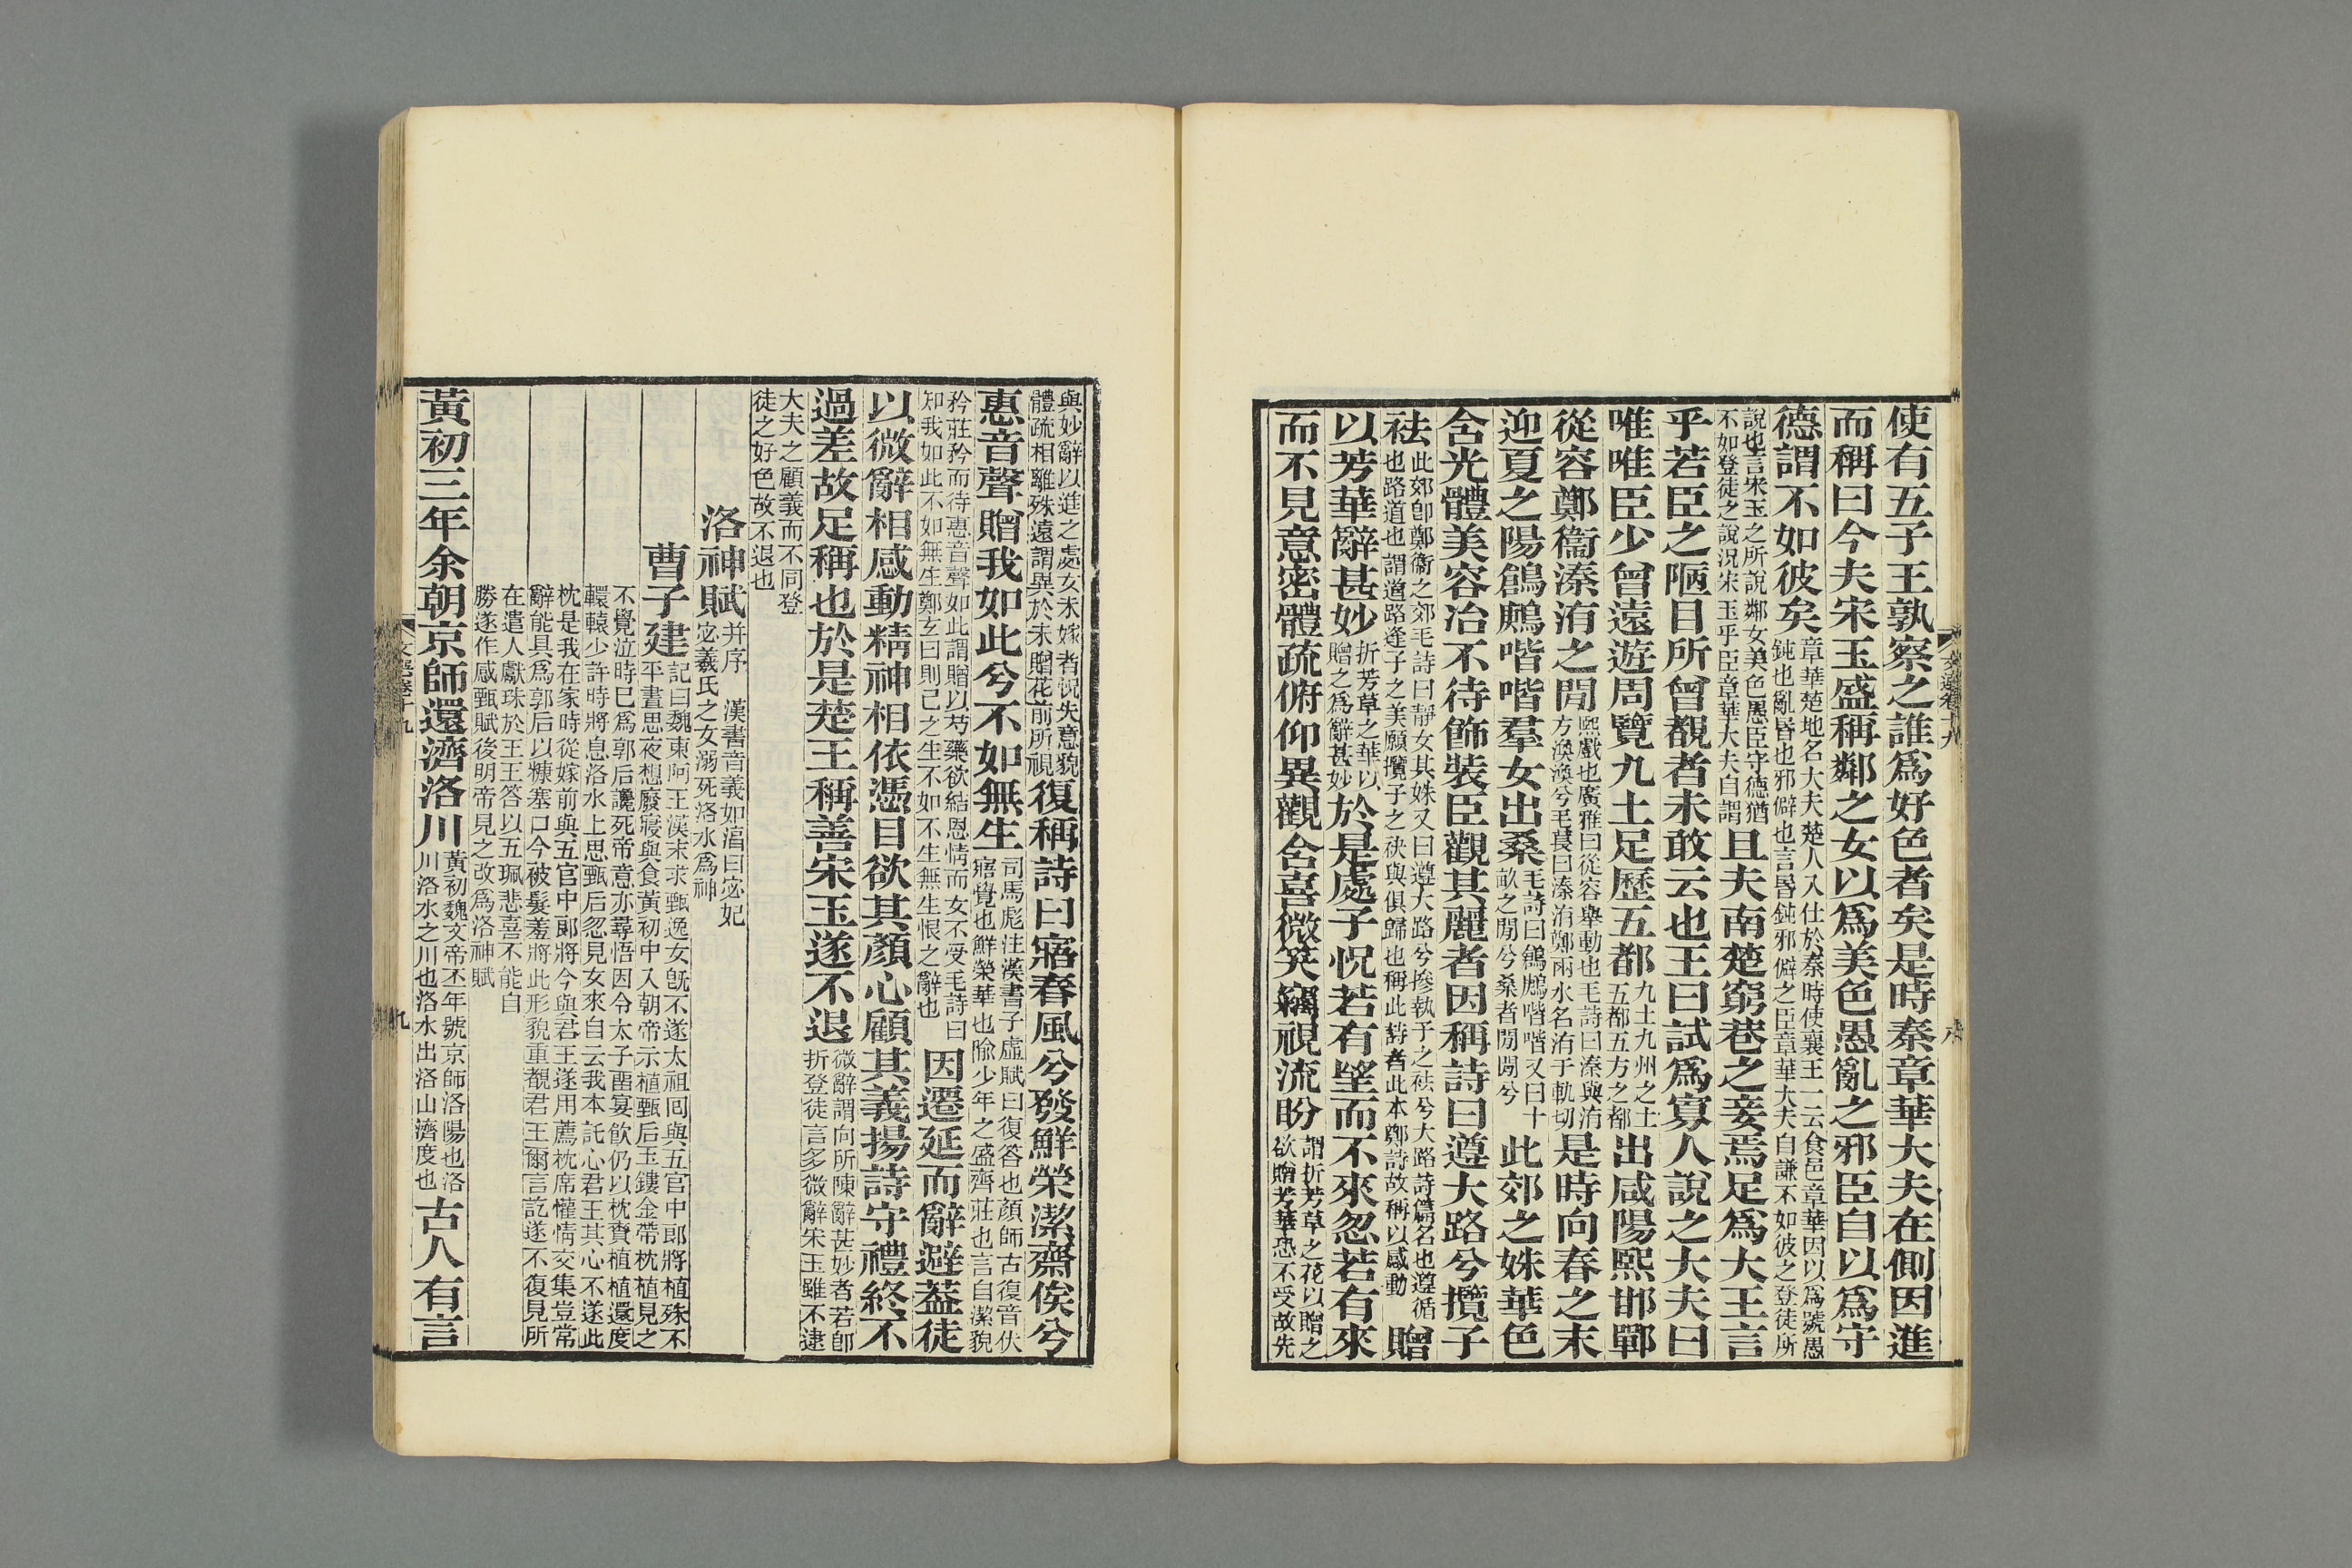 使有五子王孰察之誰爲好色者矣是時秦章華大夫在側因進
而稱曰今夫宋玉盛稱鄰之女以爲美色愚亂之邪臣自以爲守
德謂不如彼矣章華楚地名大夫楚人入仕於秦時使襄王一云食邑章華因以爲號愚
鈍也亂昏也邪僻也言昏鈍邪僻之臣章華大夫自謙不如彼之登徒所
說也言宋玉之所說鄰女美色愚臣守德猶
不如登徒之說況宋玉乎臣章華大夫自謂且夫南楚窮巷之妾焉足爲大王言
乎若臣之陋目所曾覩者未敢云也王曰試爲寡人說之大夫曰
唯唯臣少曾遠遊周覽九土足歷五都九土九州之土
五都五方之都出咸陽熙邯鄲
從容鄭衞溱洧之閒熙戲也廣雅曰從容舉動也毛詩曰溱與洧
方渙渙兮毛萇曰溱洧鄭兩水名洧于軌切是時向春之末
迎夏之陽鶬鶊喈喈羣女出桑毛詩曰鶬鶊喈喈又曰十
畝之閒兮桑者閒閒兮此郊之姝華色
含光體美容冶不待飾裝臣觀其麗者因稱詩曰遵大路兮攬子
袪此郊卽鄭衞之郊毛詩曰靜女其姝又曰遵大路兮摻執子之袪兮大路詩篇名也遵循
也路道也謂道路逢子之美願攬子之袂與俱歸也稱此詩者此本鄭詩故稱以感動贈
以芳華辭甚妙折芳草之華以
贈之爲辭甚妙於是處子怳若有望而不來忽若有來
而不見意密體疏俯仰異觀含喜微笑竊視流盼謂折芳草之花以贈之
欲贈芳華恐不受故先
文選卷十九
八
與妙辭以進之處女未嫁者怳失意貌
體疏相離殊遠謂異於未贈花前所視復稱詩曰寤春風兮發鮮榮潔齋俟兮
惠音聲贈我如此兮不如無生司馬彪注漢書子虛賦曰復答也顏師古復音伏
寤覺也鮮榮華也喩少年之盛齊莊也言自潔貌
矜莊矜而待惠音聲如此謂贈以芍藥欲結恩情而女不受毛詩曰
知我如此不如無生鄭玄曰則己之生不如不生無生恨之辭也因遷延而辭避蓋徒
以微辭相感動精神相依憑目欲其顏心顧其義揚詩守禮終不
過差故足稱也於是楚王稱善宋玉遂不退微辭謂向所陳辭甚妙者若卽
折登徒言多微辭宋玉雖不逮
大夫之顧義而不同登
徒之好色故不退也
洛神賦并序　漢書音義如湻曰宓妃
宓羲氏之女溺死洛水爲神
曹子建記曰魏東阿王漢末求甄逸女旣不遂太祖囘與五官中郞將植殊不
平晝思夜想廢寢與食黃初中入朝帝示植甄后玉鏤金帶枕植見之
不覺泣時已爲郭后讒死帝意亦尋悟因令太子畱宴飮仍以枕賚植植還度
轘轅少許時將息洛水上思甄后忽見女來自云我本託心君王其心不遂此
枕是我在家時從嫁前與五官中郞將今與君王遂用薦枕席懽情交集豈常
辭能具爲郭后以糠塞口今被髮羞將此形貌重覩君王爾言訖遂不復見所
在遣人獻珠於王王答以玉珮悲喜不能自
勝遂作感甄賦後明帝見之改爲洛神賦
黃初三年余朝京師還濟洛川黃初魏文帝丕年號京師洛陽也洛
川洛水之川也洛水出洛山濟度也古人有言
文選卷十九
九